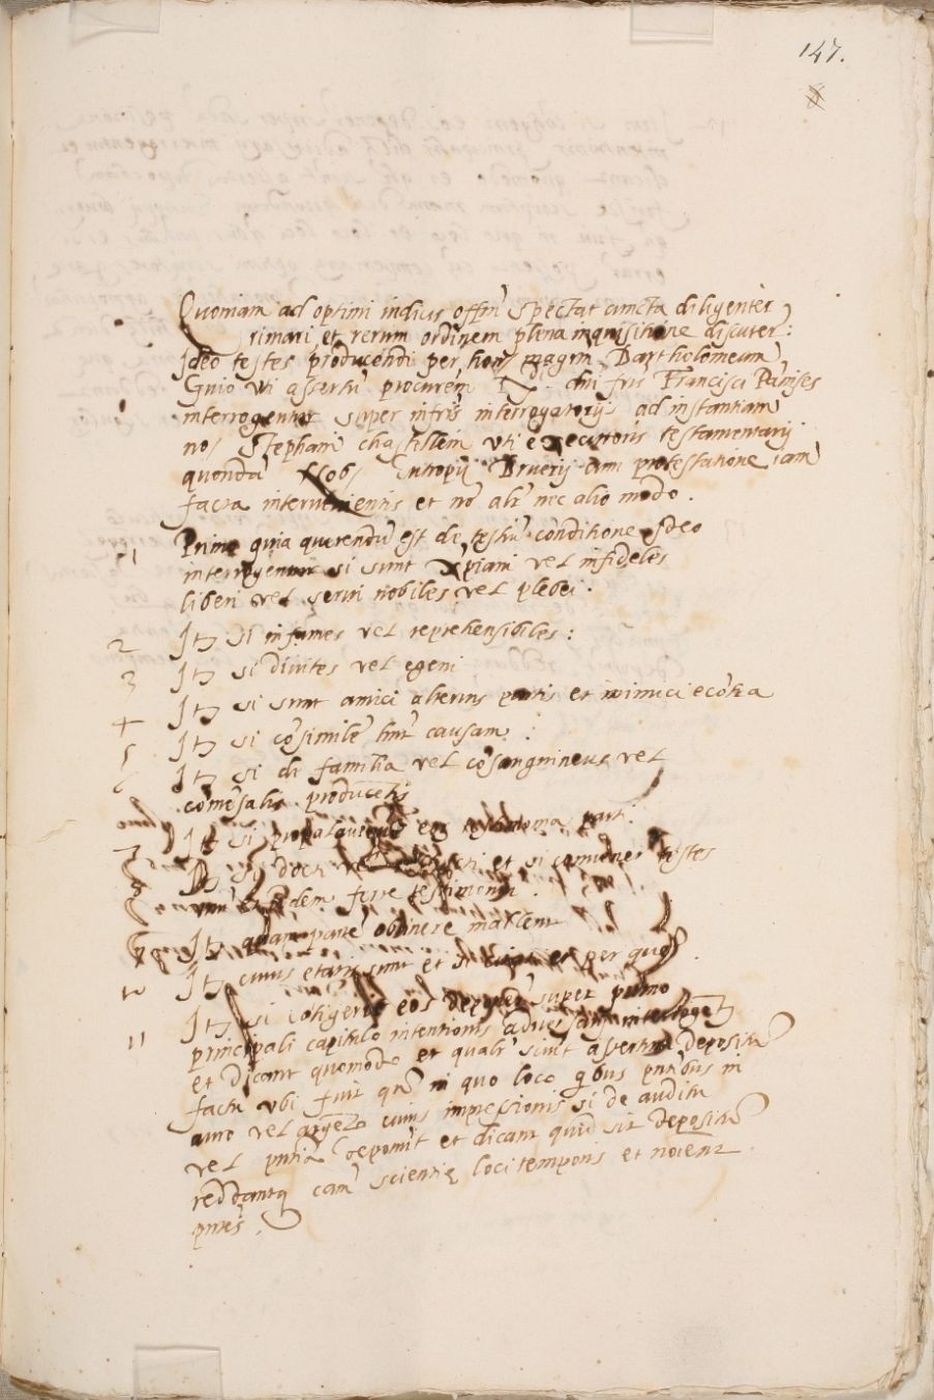 147.
Quoniam ad optimi iudicis offm̃ spectat cuncta diligenter
rimari et rerum ordinem plena inquisitione discuter:
Ideo testes producendi per hon/ magrm Bartholomeum
Guio uti assertũ procurem dni fris Francisci
interrogentur super infris interrogatorys ad instantiam
no/ Stephani chastellein uti executoris testamentarij
quondã Nob/ Eutropij Bruerij cum protestatione iam
facta intervenientis et nõ alr nec alio modo.
1 Primo quia querendũ est de testiũ conditione Ideo
interrogentur si sunt xpiani vel infideles
liberi vel servi nobiles vel plebei.
2 Itȝ si infames vel reprehensibiles:
3 Itȝ si divites vel egeni
4 Itȝ si sunt amici alterius partis et inimici ecõtra
5 Itȝ si cõsimilẽ hñt causam:
6 Itȝ si de familia vel cõsanguineus vel
cõmẽsalis producẽtis
7 Itȝ si eor testimonia parti
8 Itȝ si docti vel et si comunes testes
ferre testimoniũ.
9 Itȝ quam partẽ obtinere mallent
10 Itȝ cuius etatis sunt et per quos.
11 Itȝ si cõtigerit eos deponer super primo
principali capitulo intentionis
et dicant quomodo et qualr sciũt assertũ depositũ
factũ ubi fuit qñ in quo loco qbus pñtibus in
auro vel argẽto cuius impressionis si de auditu
vel pñtia deponũt et dicant quid sit depositũ
reddantq cam scientię loci temporis et noient
pñtes.